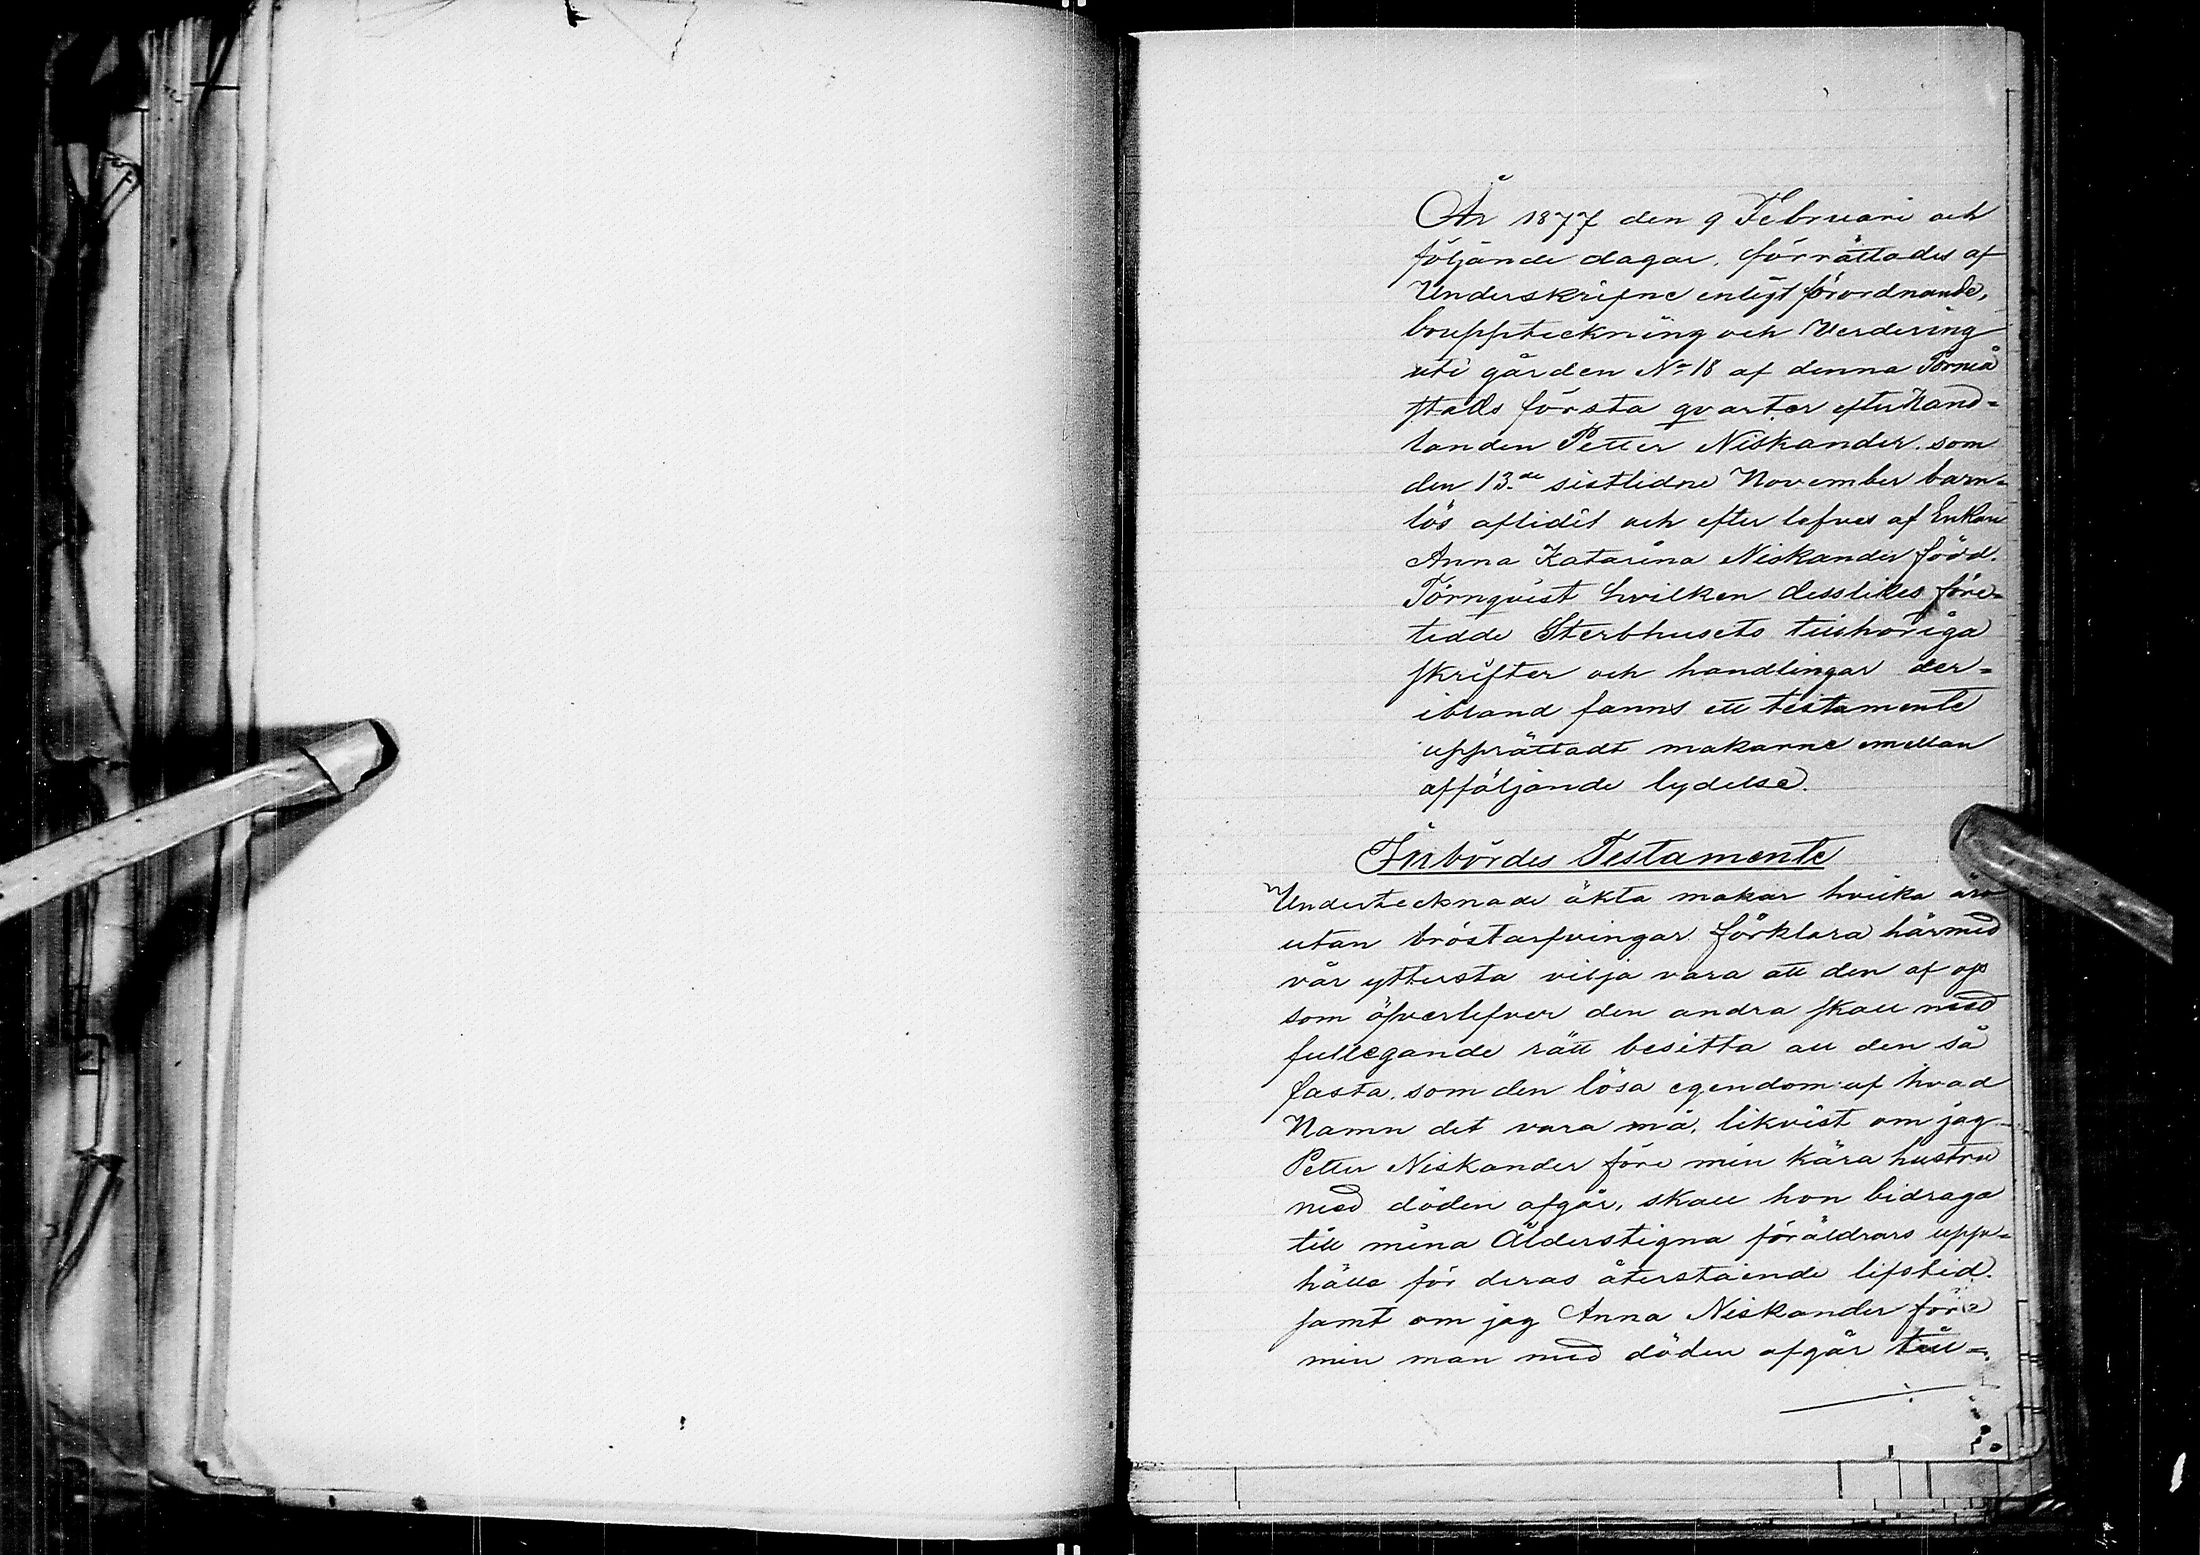 År 1877 den 9 Februari och
följande dagar, förrättades af
Underskrifne enligt förordnande,
bouppteckning och Verdering
uti gården No 18 af denna Torneå
stads första qvarter efter Hand-
landen Petter Niskander. som
den 13.de sistlidne November barn-
lös aflidit och efter lefves af Enkan
Anna Katarina Niskander född.
Törnqvist hvilken desslikes före-
tedde Sterbhusets tillhöriga
skrifter och handlingar der-
ibland fanns ett testamente
upprättadt makarne emellan
afföljande lydelse.
Inbördes Testamente
Undertecknade äkta makar hvilka äro
utan bröstarfvingar förklara härmed
vår yttersta vilja vara att den af oss
som öfverlefver den andra skall med
fullegande rätt besitta all den så
fasta. som den lösa egendom af hvad
Namn det vara må, likvist om jag
Petter Niskander före min kära hustru
med döden afgår, skall hon bidraga
till mina Ålderstigna föräldrars uppe-
hälle för deras återstående lifstid.
samt om jag Anna Niskander före
min man med döden afgår till-